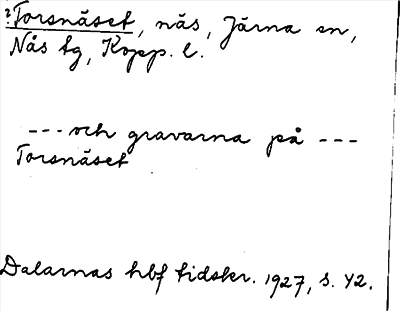 ?Torsnäset, näs, Järna sn,
Nås tg, Kopp. l.
--- och gravarna på ---
Torsnäset
Dalarnas hbf tidskr. 1927, s. 42.